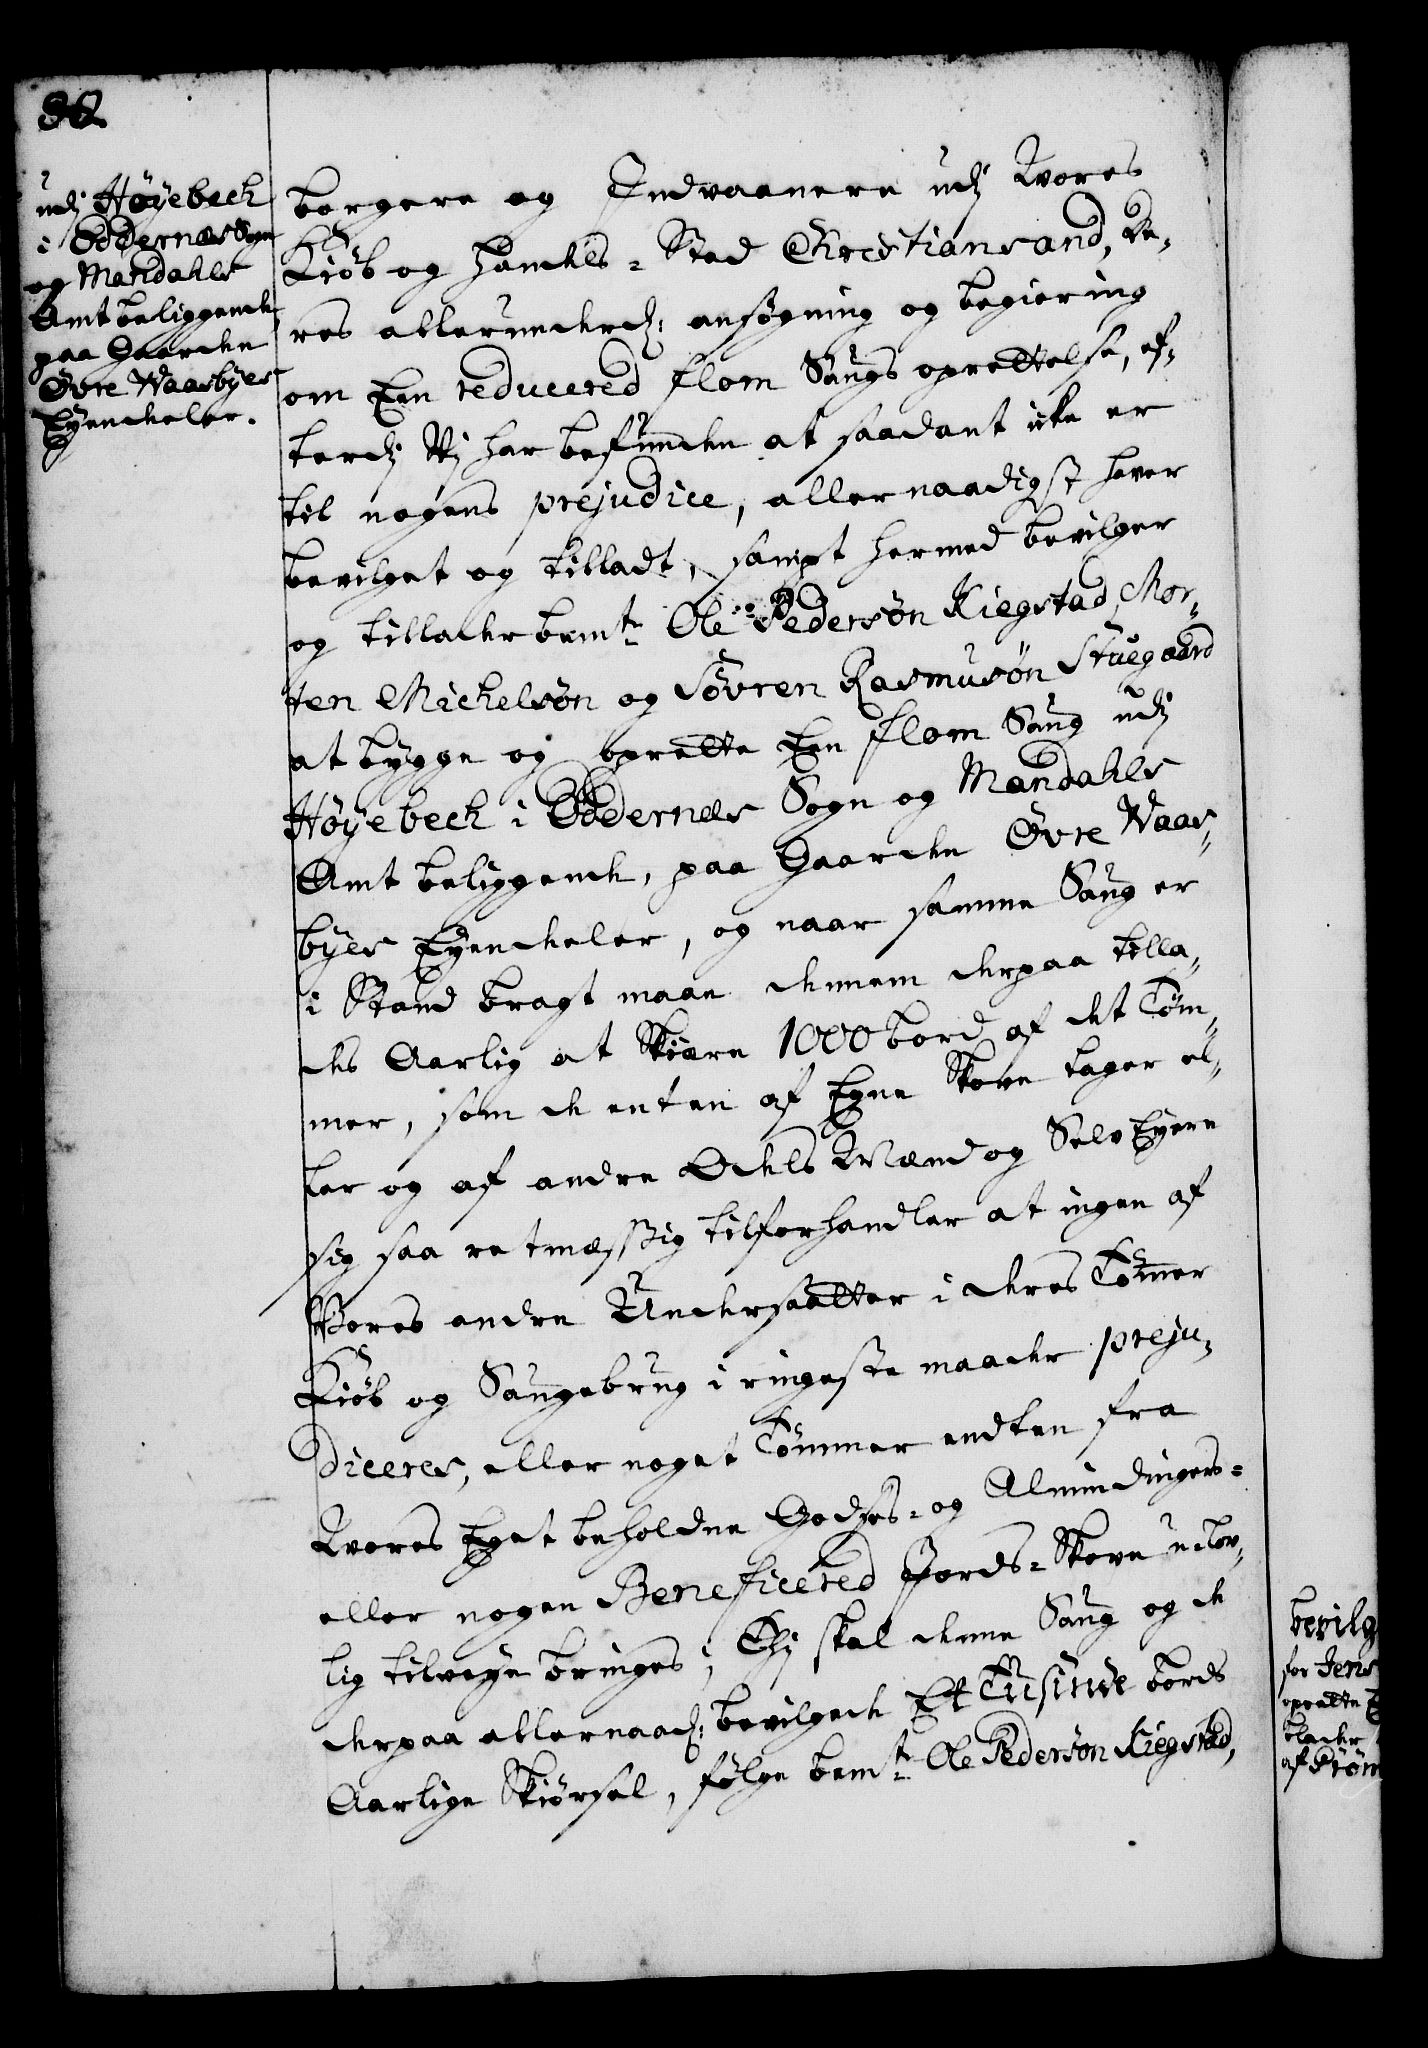 36.
udj Høyebech
i Oddernæs Sogn
og Mandahls
Amt beliggende
paa Gaarden
Øvre Waasbyes
Eyendeeler.
borgere og Indvaanere udj Vores
Kiøb og Handels-Stad Christiansand, De-
res allerunderd: ansøgning og begiering
om Een reducered flom Saugs oprettelse, ef-
terdj Wj har befunden at saadant icke er
til nogens prejudice, allernaadigst hafver
bevilget og tilladt, sampt hermed bevilger
og tillader bemte Ole Pedersøn Kiegstad, Mor-
ten Michelsøn og Søvren Rasmusøn Stuegaard
at bygge og oprette Een flom Saug udj
Høyebech i Oddernæs Sogn og Mandahls
Amt beliggende, paa Gaarden Øvre Waas-
byes Eyendeeler, og naar samme Saug er
i Stand bragt maae dennem derpaa tilla-
des Aarlig at Skiære 1000 bord af det Tøm-
mer, som de enten af Egne Skove tager el-
ler og af andre Odels Mænd og Selv Eyere
sig saa retmæssig tilforhandler at ingen af
Vores andre Undersaatter i deres Tømmer
Kiøb og Saugebrug i ringeste maader preju-
diceres, eller noget Tømmer endten fra
Vores Eget beholdne Godses- og Almindingers-
eller nogen Beneficered Jords-Skove ulov-
lig tilveye bringes; Thj skal denne Saug og de
derpaa allernaad: bevilgede Et Tusinde bords
Aarlige Skiørsel, følge bemte Ole Pedersøn Kiegstad,
bevilg
for Jens
oprette E
af